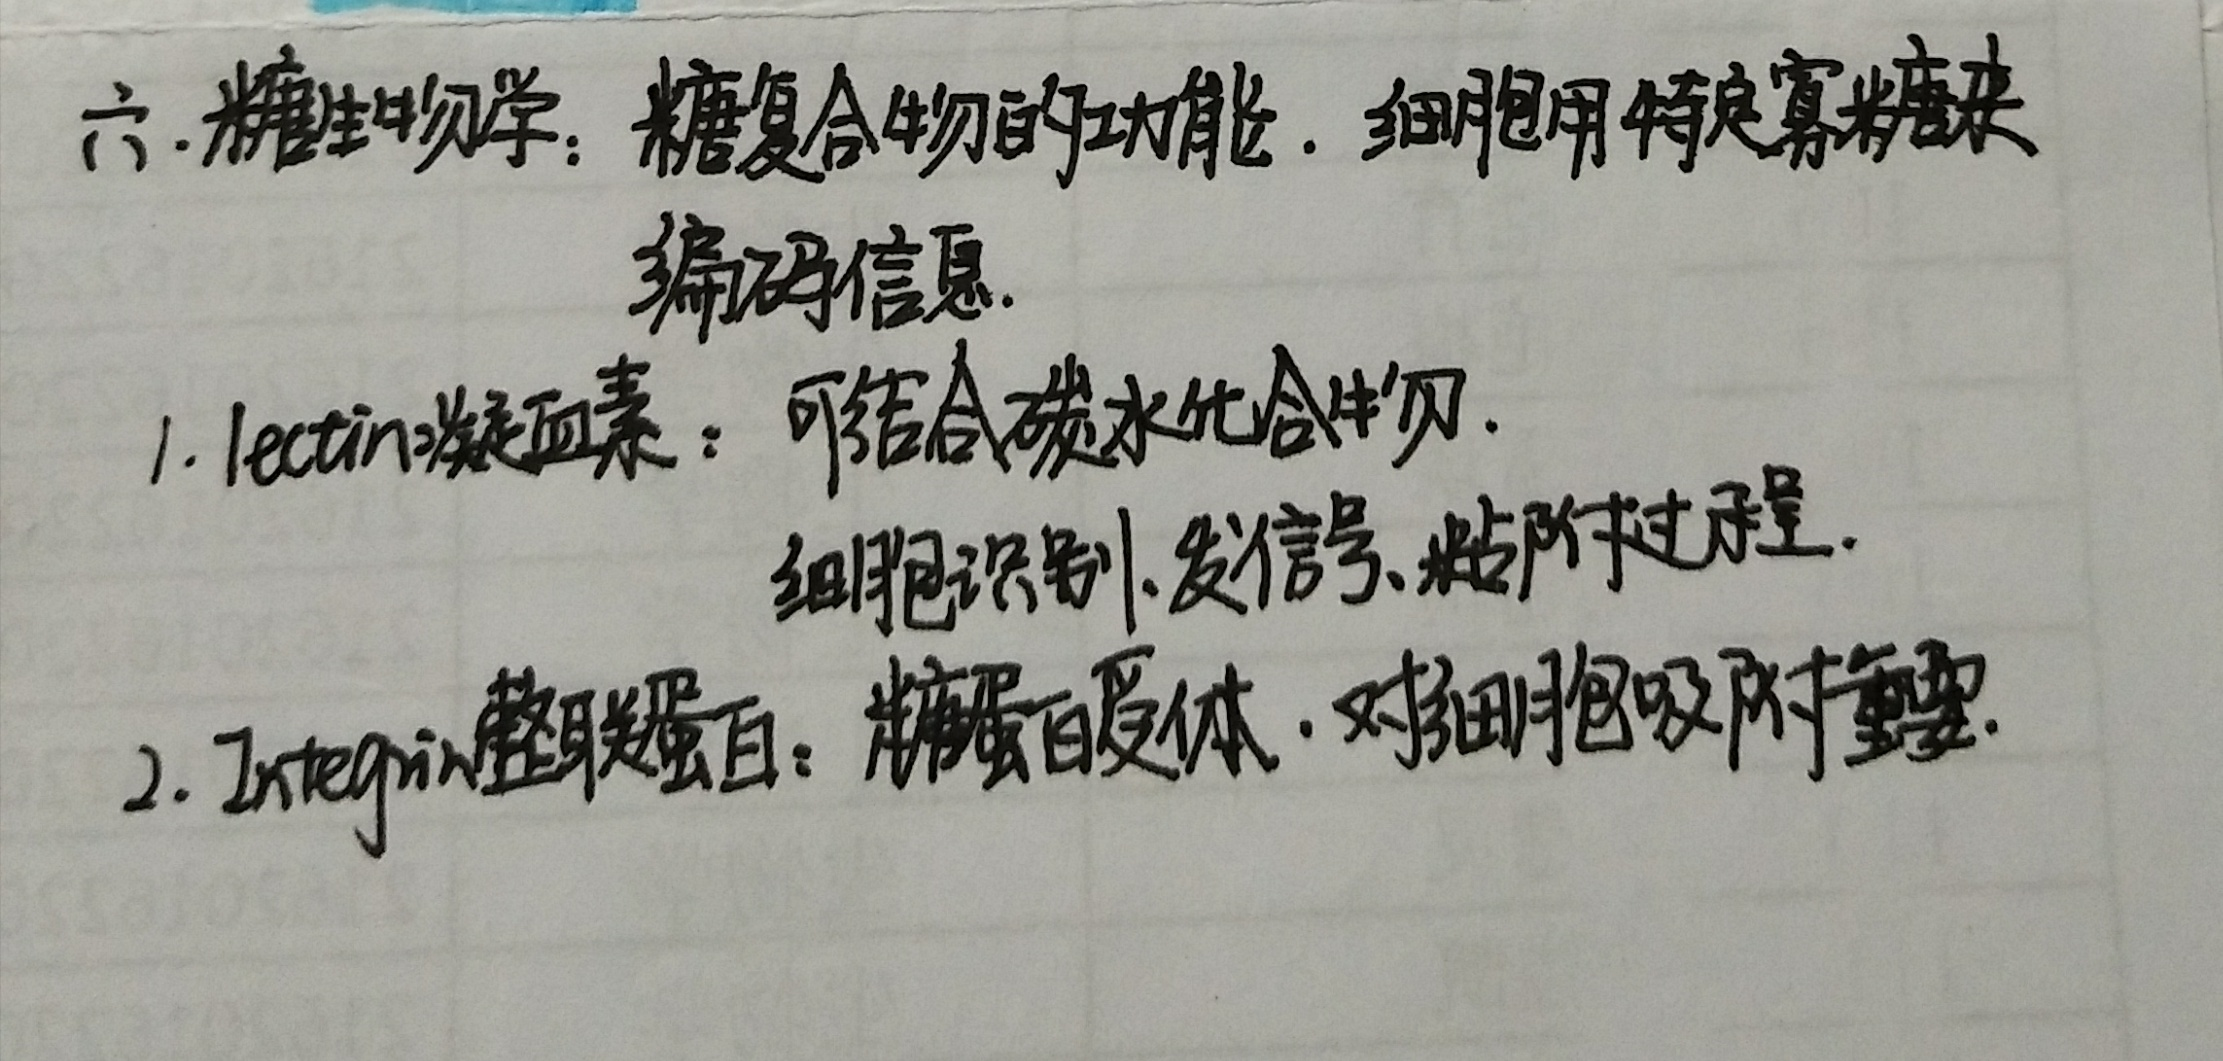 六.糖生物学：糖复合物的功能.细胞用特定寡糖来
编码信息.
1.lectin凝血素：可结合碳水化合物.
细胞识别、发信号、粘附过程.
2.Integrin整联蛋白：糖蛋白受体.对细胞吸附重要.